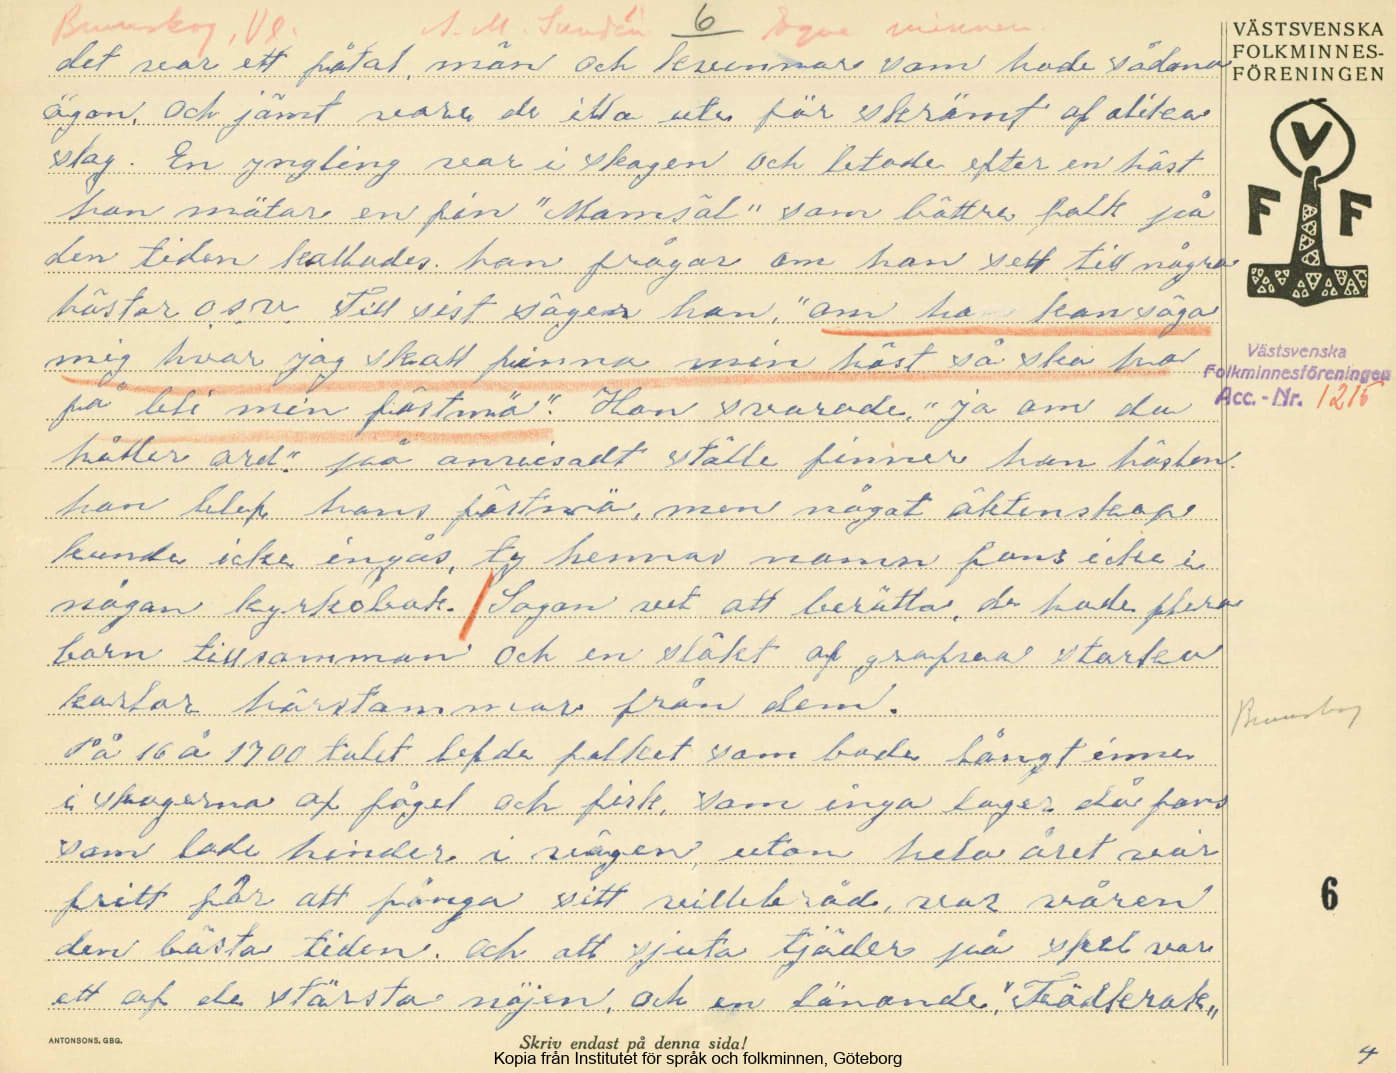 Brunskog, Vl. A. M. Lundén 6 Egna minnen.
VÄSTSVENSKA
FOLKMINNES-
FÖRENINGEN
V
F F
det var ett fåtal, män och kvinnor som hade sådana
ögon. Och jämt vore de illa ute för skrämt af olika
slag. En yngling var i skogen och letade efter en häst
han mötar en fin "Mamsäl" som bättre folk på
den tiden kallades. han frågar om han sett till några
hästar o.s.v. Till sist säger han, "om ha kan säga
mig hvar jag skall finna min häst så ska ho
få bli min fästmö". Hon svarade, "ja om du
håller ord". på anvisadt ställe finner han hästen.
hon blef hans fästmö, men något äktenskap
kunde icke ingås, ty hennas namn fans icke i
någon kyrkobok. / Sagan vet att berätta, de hade flera
barn tillsamman och en släkt af grofva starka
karlar härstammar från dem.
På 16 å 1700 talet lefde folket som bode långt inne
i skogerna af fågel och fisk, som inga lagar då fans
som lade hinder i vägen, utan hela året var
fritt får att fånga sitt villebråd, var våren
den bästa tiden. Och att sjuta tjäder på spel var
ett af de största nöjen, och en lånande, "Fädkrok"
Västsvenska
Folkminnesföreningen
Acc.-Nr. 1215
Brunskog
6
ANTONSONS, GBG.
Skriv endast på denna sida!
Kopia från Institutet för språk och folkminnen, Göteborg
4